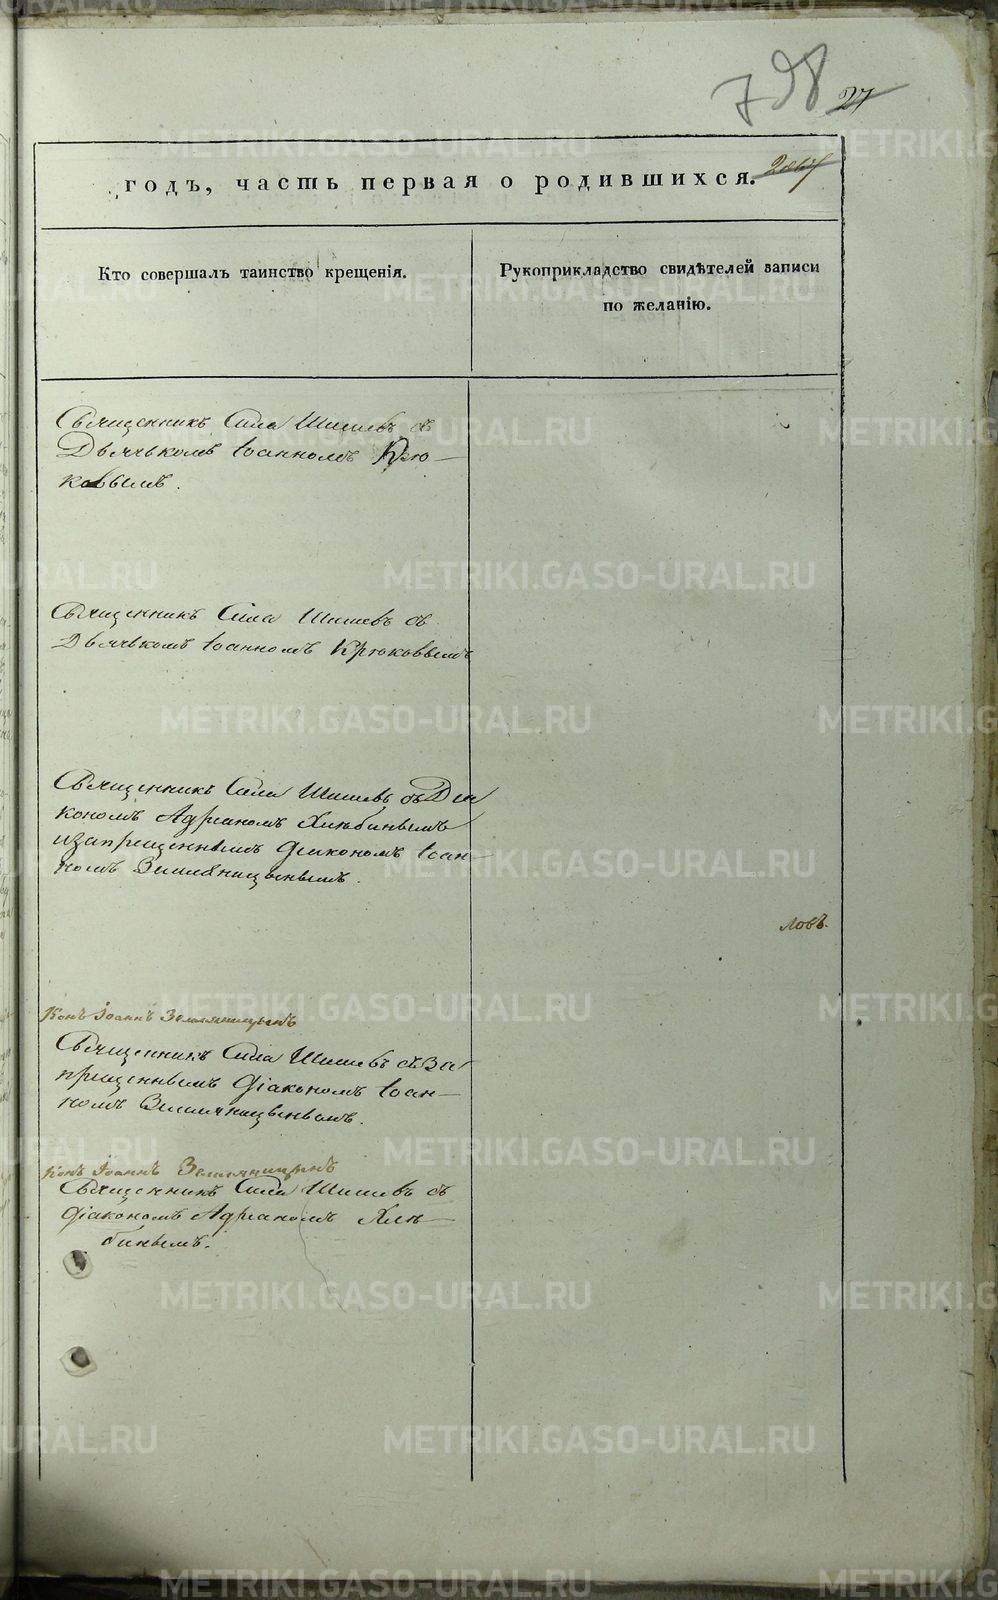 798 27
годъ, часть первая о родившихся.
Кто совершалъ таинство крещенія.
Рукоприкладство свидѣтелей записи
по желанію.
Священникъ Сила Шишевъ съ
Дьячькомъ Іоанномъ Крю-
ковымъ.
Священникъ Сила Шишевъ съ
Дьячькомъ Іоанномъ Крюковымъ
Священникъ Сила Шишевъ съ Діа
кономъ Адріаномъ Хлѣбинымъ
и запрещеннымъ Діакономъ Іоан-
номъ Земляницынымъ.
ловъ.
конъ Іоаннъ Земляницынъ
Священникъ Сила Шишевъ съ За
прещеннымъ Діакономъ Іоан-
номъ Земляницынымъ.
конъ Іоаннъ Земляницынъ
Священникъ Сила Шишевъ съ
Діакономъ Адріаномъ Хлѣ-
бинымъ.
METRIKI.GASO-URAL.RU